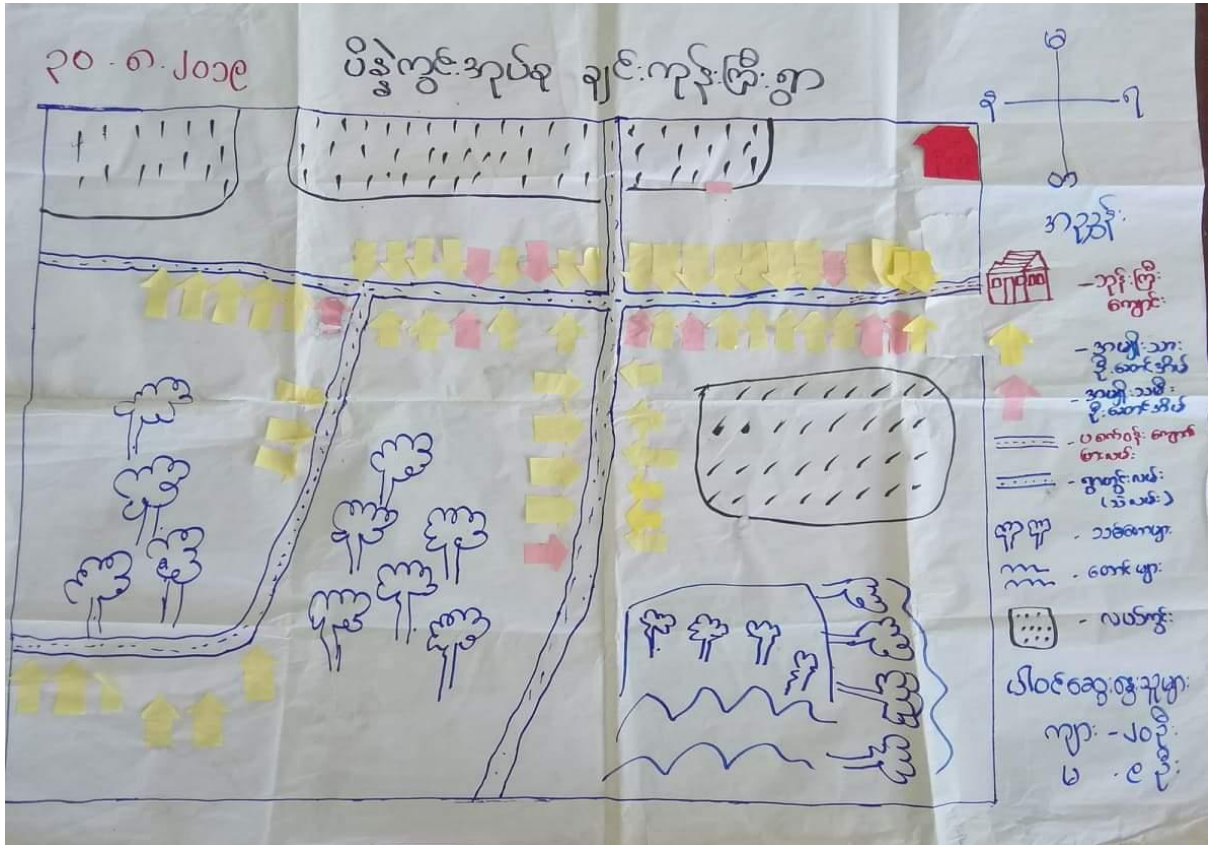 ၃၀.၈.၂၀၁၉
ပိန္နဲကွင်းအုပ်စု ချင်းကုန်းကြီးရွာ
မ
န
ရ
တ
အညွှန်း
-ဘုန်းကြီး
ကျောင်း
-အမျိုးသား
ဦးဆောင်အိမ်
-အမျိုးသမီး
ဦးဆောင်အိမ်
- ရွာတွင်းလမ်း
- သစ်တောများ
- တောင်များ
- လယ်ကွင်း
ပါဝင်ဆွေးနွေးသူများ
ကျား -၂၀ဦး
မ -၉ဦး